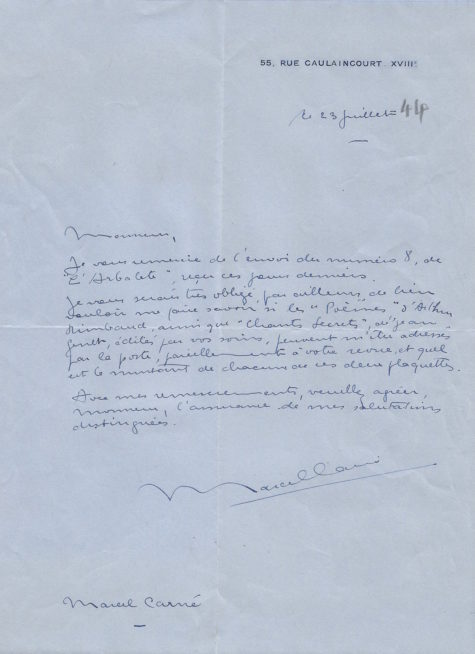 55, RUE CAULAINCOURT XVIIIᵉ
le 23 juillet 44
Monsieur,
Je vous remercie de l'envoi du numéro 8, de
"L'Arbalète", reçu ces jours derniers.
Je vous serais très obligé, par ailleurs, de bien
vouloir me faire savoir si les "Poèmes" d'Arthur
Rimbaud, ainsi que "Chants Secrets", de Jean
Genet, édités par vos soins, peuvent m'être adressés
par la poste, pareillement à votre revue, et quel
est le montant de chacune de ces deux plaquettes.
Avec mes remerciements, veuillez agréer,
Monsieur, l'assurance de mes salutations
distinguées.
Marcel Carné
Marcel Carné